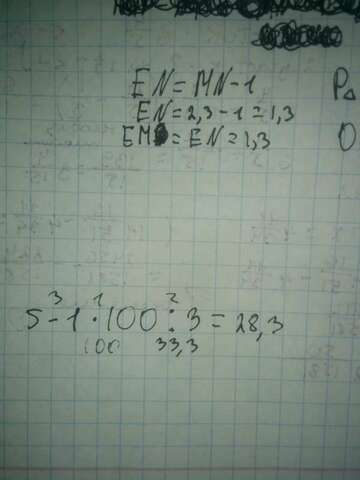 EN = MN - 1
P△
EN = 2,3 - 1 = 1,3
EM = EN = 1,3
O
3 1 2
5 - 1 · 100 : 3 = 28,3
100 33,3